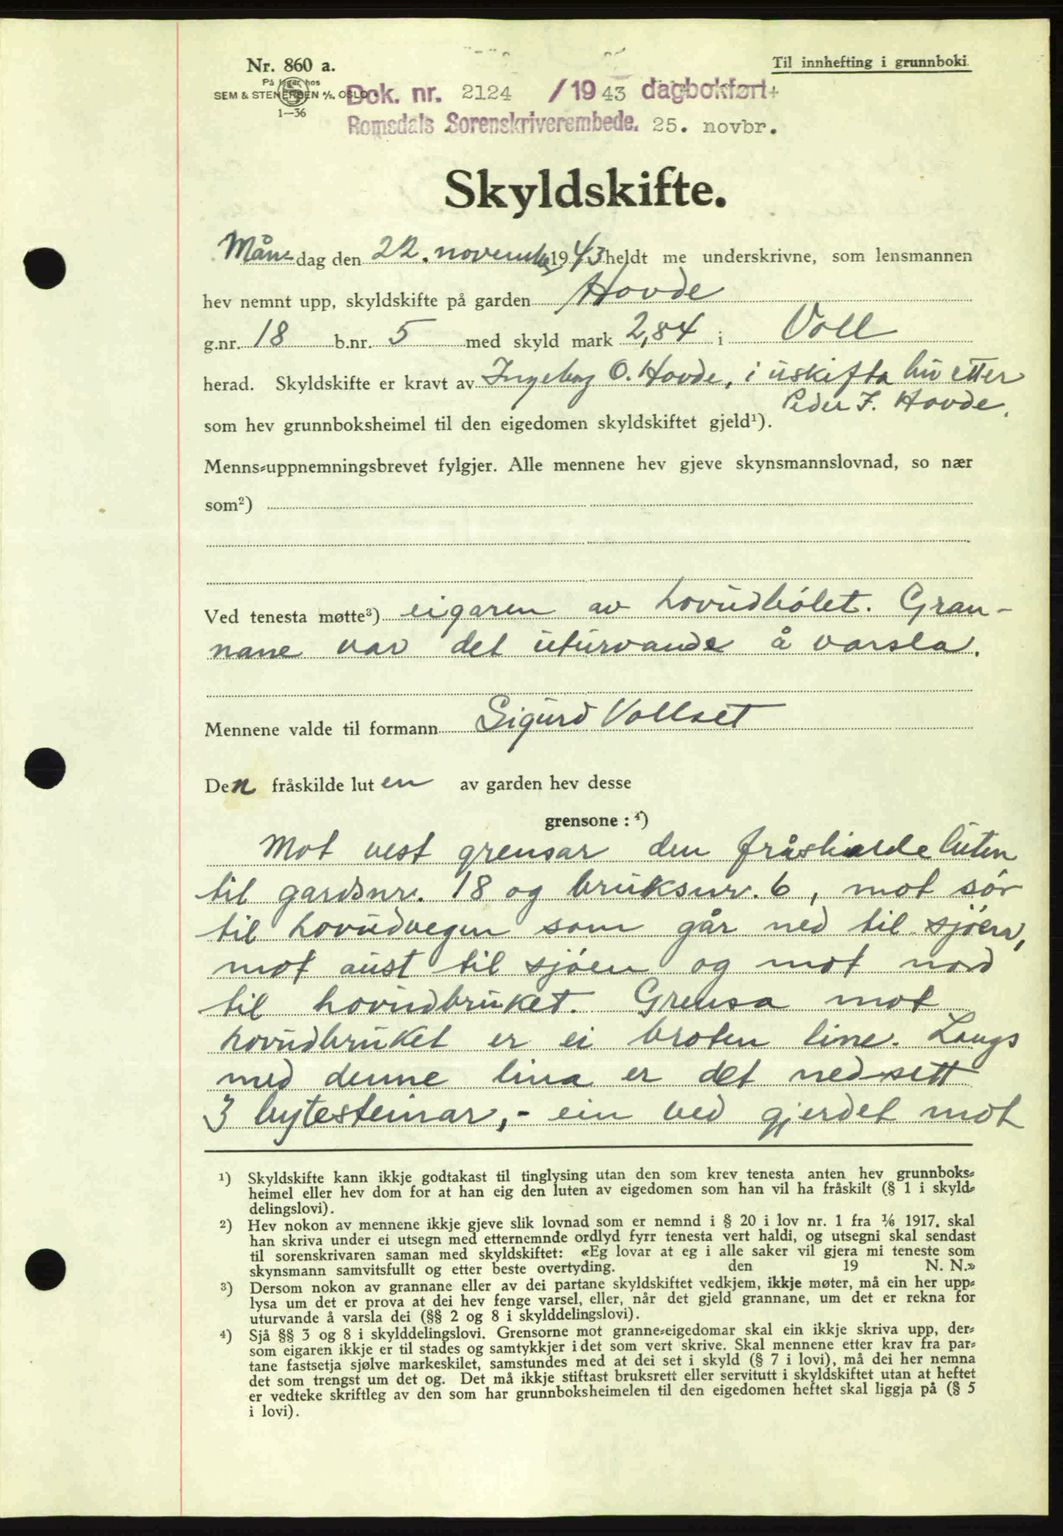 Nr. 860 a.
Til innhefting i grunnboki
På lager hos
SEM & STENERSEN A/S, OSLO
1—36
Dok. nr. 2124 /1943 dagbokført
Romsdals Sorenskriverembede. 25. novbr.
Skyldskifte.
Måndag den 22. november 1943 heldt me underskrivne, som lensmannen
hev nemnt upp, skyldskifte på garden Hovde
g.nr. 18 b.nr. 5 med skyld mark 2,84 i Voll
herad. Skyldskifte er kravt av Ingebørg O. Hovde, i uskifta bu etter
Peder J. Hovde.
som hev grunnboksheimel til den eigedomen skyldskiftet gjeld¹).
Menns-uppnemningsbrevet fylgjer. Alle mennene hev gjeve skynsmannslovnad, so nær
som²)
Ved tenesta møtte³) eigaren av hovudbølet. Gran-
nane var det uturvande å varsla.
Mennene valde til formann Sigurd Vollset
Den fråskilde luten av garden hev desse
grensone : ⁴)
Mot vest grensar den fråskilde luten
til gardsnr. 18 og bruksnr. 6, mot sør
til hovudvegen som går ned til sjøen,
mot aust til sjøen og mot nord
til hovudbruket. Grensa mot
hovudbruket er ei broten line. Langs
med denne lina er det nedsett
3 bytesteinar, - ein ved gjerdet mot
¹) Skyldskifte kann ikkje godtakast til tinglysing utan den som krev tenesta anten hev grunnboks-
heimel eller hev dom for at han eig den luten av eigedomen som han vil ha fråskilt (§ 1 i skyld-
delingslovi).
²) Hev nokon av mennene ikkje gjeve slik lovnad som er nemnd i § 20 i lov nr. 1 fra ⅙ 1917, skal
han skriva under ei utsegn med etternemnde ordlyd fyrr tenesta vert haldi, og utsegni skal sendast
til sorenskrivaren saman med skyldskiftet: «Eg lovar at eg i alle saker vil gjera mi teneste som
skynsmann samvitsfullt og etter beste overtyding. den 19 N. N.»
³) Dersom nokon av grannane eller av dei partane skyldskiftet vedkjem, ikkje møter, må ein her upp-
lysa um det er prova at dei hev fenge varsel, eller, når det gjeld grannane, um det er rekna for
uturvande å varsla dei (§§ 2 og 8 i skylddelingslovi).
⁴) Sjå §§ 3 og 8 i skylddelingslovi. Grensorne mot granne-eigedomar skal ein ikkje skriva upp, der-
som eigaren ikkje er til stades og samtykkjer i det som vert skrive. Skal mennene etter krav fra par-
tane fastsetja sjølve markeskilet, samstundes med at dei set i skyld (§ 7 i lovi), må dei her nemna
det som trengst um det og. Det må ikkje stiftast bruksrett eller servitutt i skyldskiftet utan at heftet
er vedteke skriftleg av den som har grunnboksheimelen til den eigedomen heftet skal liggja på (§ 5
i lovi).